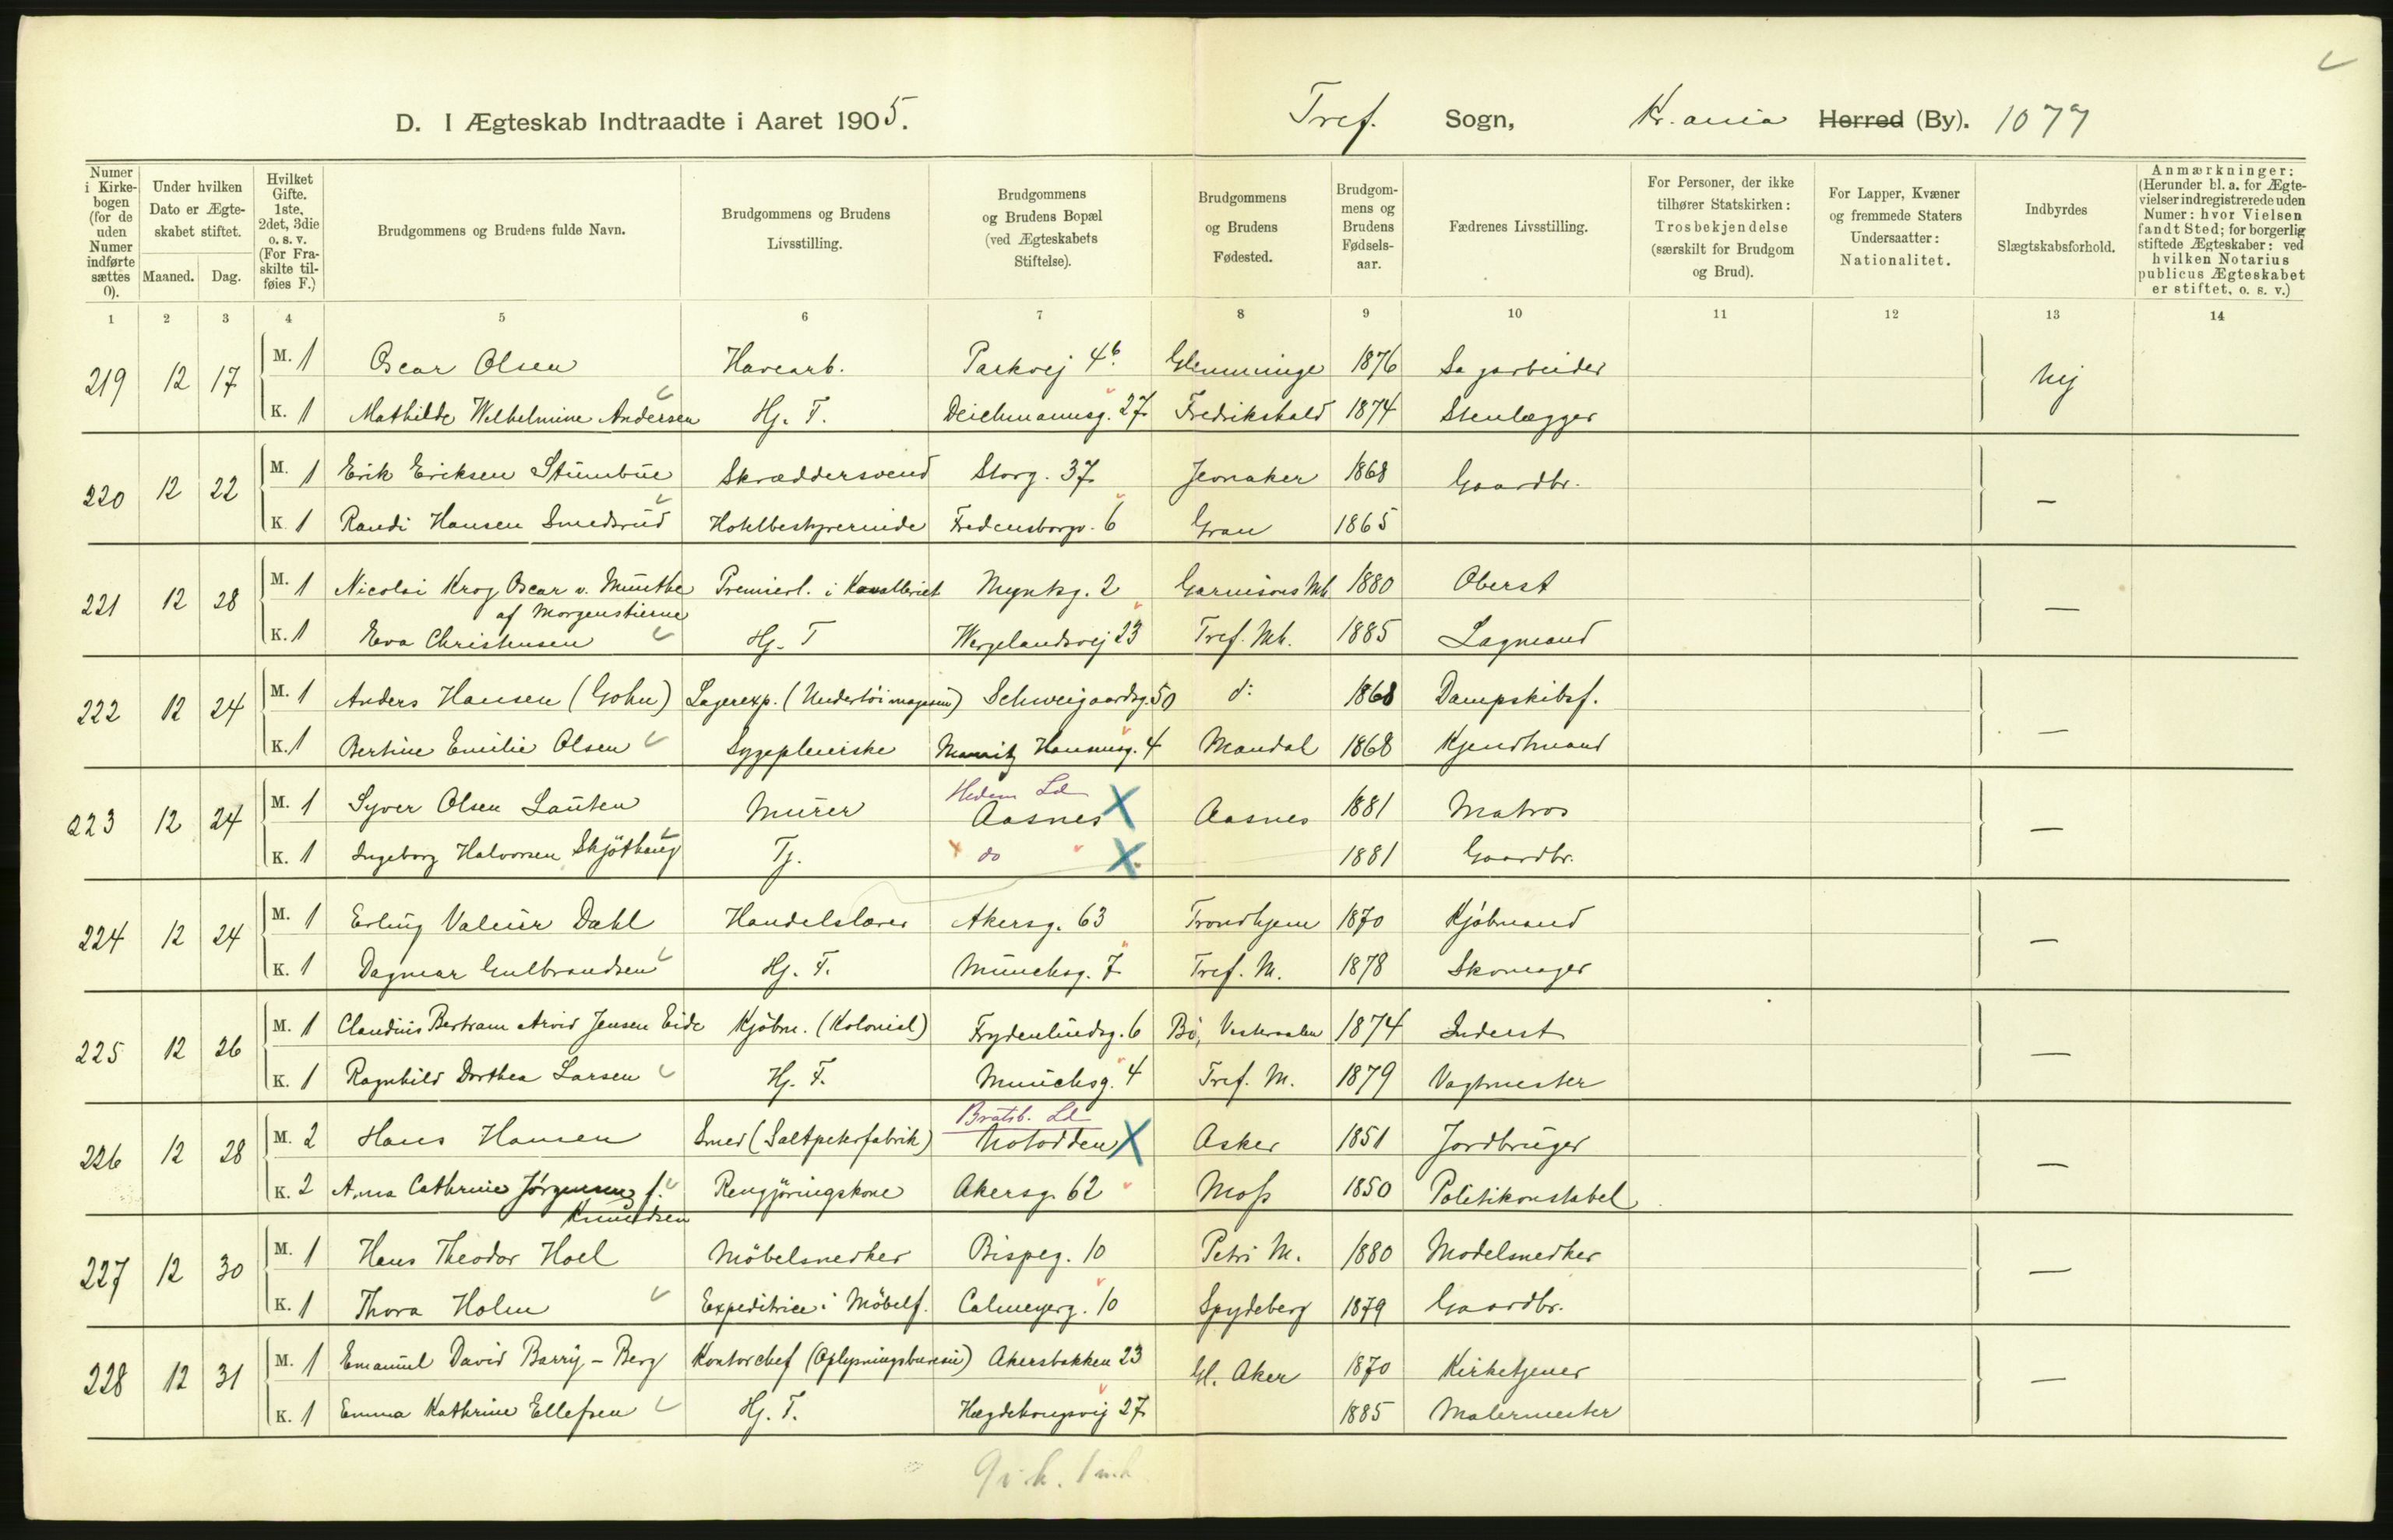 D. I Ægteskab Indtraadte i Aaret 1905. Tref. Sogn, Kr.ania Herred (By). 1077
Numer i Kirkebogen (for de uden Numer indførte sættes 0).
Under hvilken Dato er Ægteskabet stiftet.
Maaned. Dag.
Hvilket Gifte. 1ste, 2det, 3die o. s. v. (For Fraskilte tilføies F.)
Brudgommens og Brudens fulde Navn.
Brudgommens og Brudens Livsstilling.
Brudgommens og Brudens Bopæl (ved Ægteskabets Stiftelse).
Brudgommens og Brudens Fødested.
Brudgommens og Brudens Fødselsaar.
Fædrenes Livsstilling.
For Personer, der ikke tilhører Statskirken: Trosbekjendelse (særskilt for Brudgom og Brud).
For Lapper, Kvæner og fremmede Staters Undersaatter: Nationalitet.
Indbyrdes Slægtskabsforhold.
Anmærkninger: (Herunder bl. a. for Ægtevielser indregistrerede uden Numer: hvor Vielsen fandt Sted; for borgerlig stiftede Ægteskaber: ved hvilken Notarius publicus Ægteskabet er stiftet, o. s. v.)
1 2 3 4 5 6 7 8 9 10 11 12 13 14
219 12 17 M. 1 Oscar Olsen Havearb. Parkvej 4b. Glemminge 1876 Sagarbeider Nej
K. 1 Mathilde Wilhelmine Andersen Hj. T. Deichmannsg. 27 Fredrikshald 1874 Stenlægger
220 12 22 M. 1 Erik Eriksen Stumbue Skræddersvend Storg. 37 Jevnaker 1868 Gaardbr. —
K. 1 Randi Hansen Smedsrud Hotelbestyrerinde Fredensborgv. 6 Gran 1865
221 12 28 M. 1 Nicolai Krog Oscar v. Munthe af Morgenstierne Premierl. i Kavalleriet Myntg. 2 Garnisons Mh 1880 Oberst —
K. 1 Eva Christensen Hj. T Wergelandsvej 23 Tref. Mh. 1885 Lagmand
222 12 24 M. 1 Anders Hansen (Gohn) Lagerexp. (Undertöimagasin) Schweigaardsg. 50 do 1868 Dampskibsf. —
K. 1 Bertine Emilie Olsen Sygepleierske Mauritz Hansensg. 4 Mandal 1868 Kjendtmand
223 12 24 M. 1 Syver Olsen Lauten Murer Hedem Ld Aasnes X Aasnes 1881 Matros —
K. 1 Ingeborg Halvorsen Skjöthaug Tj. do X 1881 Gaardbr.
224 12 24 M. 1 Erling Valeur Dahl Handelslærer Akersg. 63 Trondhjem 1870 Kjöbmand —
K. 1 Dagmar Gulbrandsen Hj. T. Munchsg. 7 Tref. M. 1878 Skomager
225 12 26 M. 1 Claudius Bertram Arvid Jensen Eide Kjöbm. (Kolonial) Frydenlundsg. 6 Bö, Vesteraalen 1874 Inderst —
K. 1 Ragnhild Dorthea Larsen Hj. T. Munchsg. 4 Tref. M. 1879 Vagtmester
226 12 28 M. 2 Hans Hansen Smed (Saltpeterfabrik) Bratsb. Ld Notodden X Asker 1851 Jordbruger —
K. 2 Anna Cathrine Jörgensen f. Knudsen Rengjöringskone Akersg. 62 Moss 1850 Politikonstabel
227 12 30 M. 1 Hans Theodor Hoel Möbelsnedker Bispeg. 10 Petri M. 1880 Modelsnedker —
K. 1 Thora Holm Expeditrice i Möbelf. Calmeyerg. 10 Spydeberg 1879 Gaardbr.
228 12 31 M. 1 Emanuel David Barry-Berg Kontorchef (Oplysningsbureau) Akersbakken 23 Gl. Aker 1870 Kirketjener —
K. 1 Emma Kathrine Ellefsen Hj. T. Hægdehougsvej 27 1885 Malermester
9 i.h. 1 u.h.